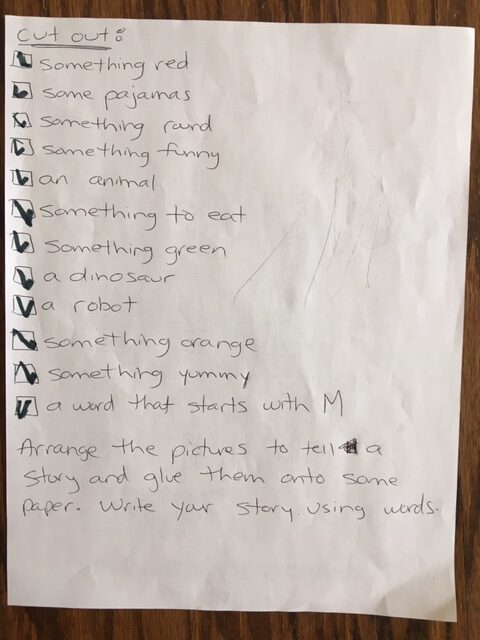 Cut out:
something red
some pajamas
something round
something funny
an animal
something to eat
something green
a dinosaur
a robot
something orange
something yummy
a word that starts with M
Arrange the pictures to tell a
story and glue them onto some
paper. Write your story using words.